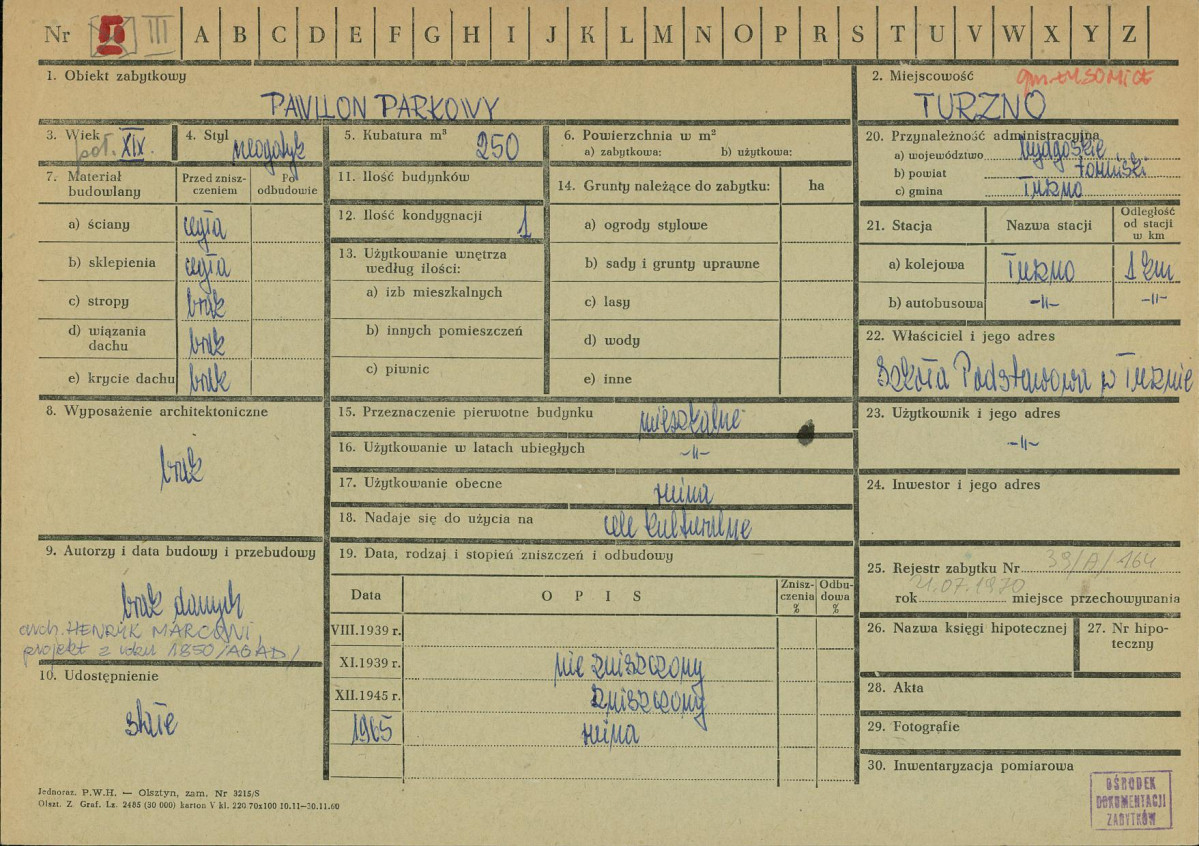 Nr III A B C D E F G H I J K L M N O P R S T U V W X Y Z
1. Obiekt zabytkowy
PAWILON PARKOWY
2. Miejscowość gm. ŁYSOMICE
TURZNO
3. Wiek
poł. XIX.
4. Styl
neogotyk
5. Kubatura m³ 250
6. Powierzchnia w m²
a) zabytkowa: b) użytkowa:
7. Materiał budowlany
Przed zniszczeniem
Po odbudowie
a) ściany cegła
b) sklepienia cegła
c) stropy brak
d) wiązania dachu brak
e) krycie dachu brak
8. Wyposażenie architektoniczne
brak
9. Autorzy i data budowy i przebudowy
brak danych
arch. HENRYK MARCONI,
projekt z roku 1850 /AGAD/
10. Udostępnienie
stałe
11. Ilość budynków
12. Ilość kondygnacji 1
13. Użytkowanie wnętrza
według ilości:
a) izb mieszkalnych
b) innych pomieszczeń
c) piwnic
14. Grunty należące do zabytku: ha
a) ogrody stylowe
b) sady i grunty uprawne
c) lasy
d) wody
e) inne
15. Przeznaczenie pierwotne budynku mieszkalne
16. Użytkowanie w latach ubiegłych -"-
17. Użytkowanie obecne ruina
18. Nadaje się do użycia na cele kulturalne
19. Data, rodzaj i stopień zniszczeń i odbudowy
Data OPIS Zniszczenia % Odbudowa %
VIII.1939 r.
XI.1939 r. nie zniszczony
XII.1945 r. zniszczony
1965 ruina
20. Przynależność administracyjna
a) województwo bydgoskie
b) powiat toruński
c) gmina Turzno
21. Stacja Nazwa stacji Odległość od stacji w km
a) kolejowa Turzno 1 km
b) autobusowa -"- -"-
22. Właściciel i jego adres
Szkoła Podstawowa w Turznie
23. Użytkownik i jego adres
-"-
24. Inwestor i jego adres
25. Rejestr zabytku Nr 39/A/464
rok 21.07.1970 miejsce przechowywania
26. Nazwa księgi hipotecznej
27. Nr hipoteczny
28. Akta
29. Fotografie
30. Inwentaryzacja pomiarowa
OŚRODEK
DOKUMENTACJI
ZABYTKÓW
Jednoraz. P.W.H. — Olsztyn, zam. Nr 3215/S
Olszt. Z. Graf. Lz. 2485 (30 000) karton V kl. 220 70x100 10.11—30.11.60